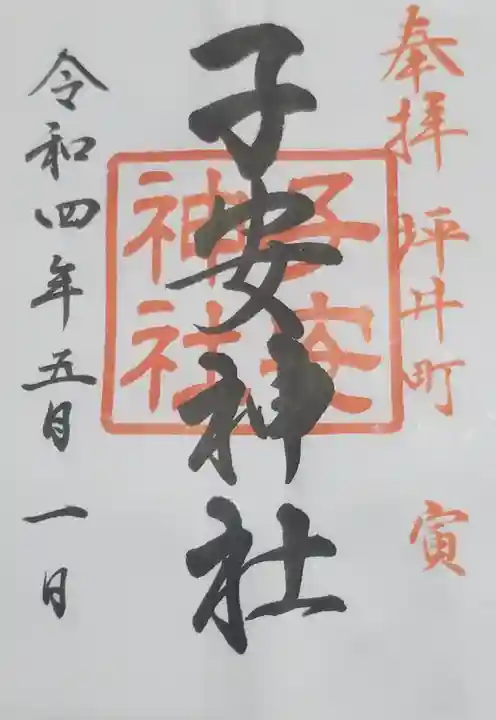 奉拝 坪井町 寅
子安神社
子安
神社
令和四年五月一日